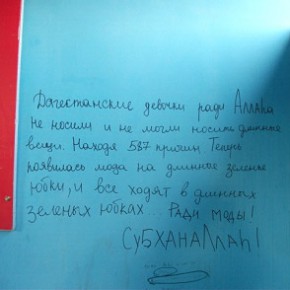 Дагестанские девочки ради Аллаha
Не носили и не могли носить длинные
вещи. Находя 587 причин Теперь
появилась мода на длинные зеленые
юбки, и все ходят в длинных
зеленых юбках. Ради моды!
СУБХАНАЛЛАh!